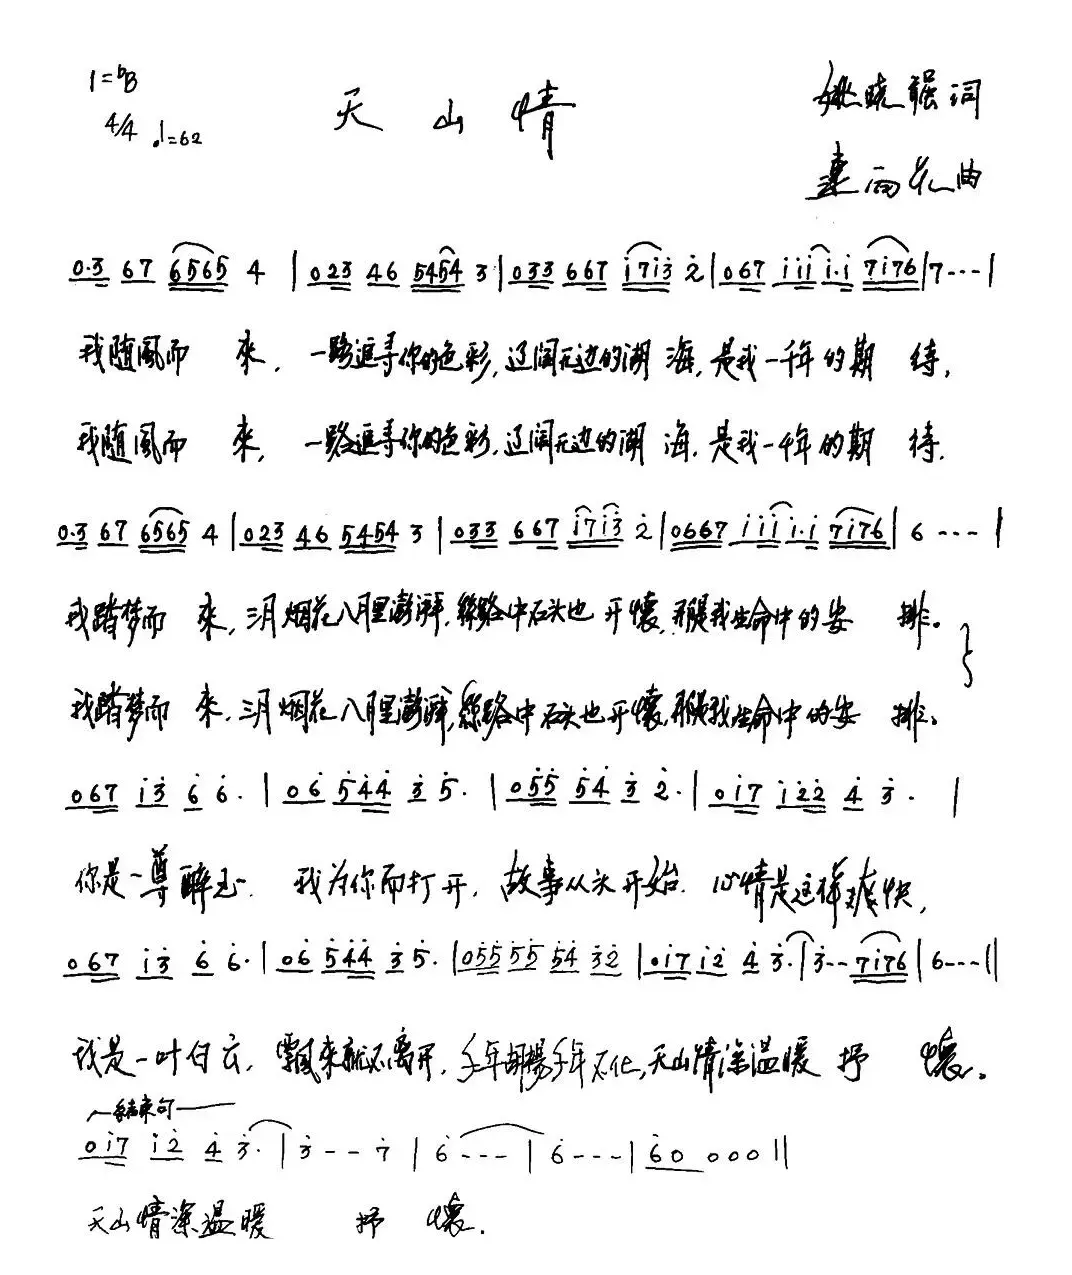 1=bB 天山情 姚晓强词
4/4 ♩=62
雨花曲
0·3 67 6565 4 | 023 46 5454 3 | 033 667 i7i3 2 | 067 iii i·i 7i76 | 7--- |
我随風而 來，一路追寻你的色彩，辽阔无边的湖 海，是我一千年的期 待，
我随風而 來，一路追寻你的色彩，辽阔无边的湖 海，是我一千年的期 待，
0·3 67 6565 4 | 023 46 5454 3 | 033 667 i7i3 2 | 0667 iii i·i 7i76 | 6 --- |
我踏梦而 來，三月烟花八月里澎湃，絲路中石头也 开懷，那是我生命中的安 排。
我踏梦而 來，三月烟花八月里澎湃，絲路中石头也开懷，那是我生命中的安 排。
067 i3 6 6· | 06 544 3 5· | 055 54 3 2· | 0i7 i22 4 3· |
你是一尊醉玉. 我为你而打开，故事从头开始. 心情是这样爽快，
067 i3 6 6· | 06 544 35· | 055 55 54 32 | 0i7 i2 4 3· | 3-- 7i76 | 6--- ||
我是一叶白云，飘来就不离开，千年胡楊千年不化，天山情深温暖 抒 懷。
结束句
0i7 i2 4 3· | 3--7 | 6--- | 6--- | 60 000 ||
天山情深温暖 抒 懷.